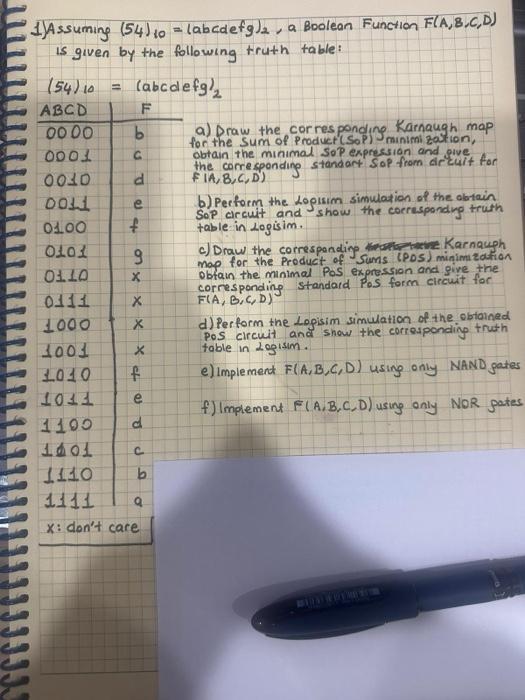 1) Assuming (54)10 = (abcdefg)2, a Boolean Function F(A,B,C,D)
is given by the following truth table:
(54)10 = (abcdefg)2
ABCD F
0000 b
0001 c
0010 d
0011 e
0100 f
0101 g
0110 x
0111 x
1000 x
1001 x
1010 f
1011 e
1100 d
1101 c
1110 b
1111 a
x: don't care
a) Draw the corresponding Karnaugh map
for the Sum of Product (SoP) minimization,
obtain the minimal SoP expression and give
the corresponding standart SoP from circuit for
F(A,B,C,D)
b) Perform the Logisim simulation of the obtain
SoP circuit and show the corresponding truth
table in Logisim.
c) Draw the corresponding Karnaugh
map for the Product of Sums (POS) minimization
obtain the minimal PoS expression and give the
corresponding standard PoS form circuit for
F(A,B,C,D)
d) Perform the Logisim simulation of the obtained
PoS circuit and show the corresponding truth
table in Logisim.
e) Implement F(A,B,C,D) using only NAND gates
f) Implement F(A,B,C,D) using only NOR gates